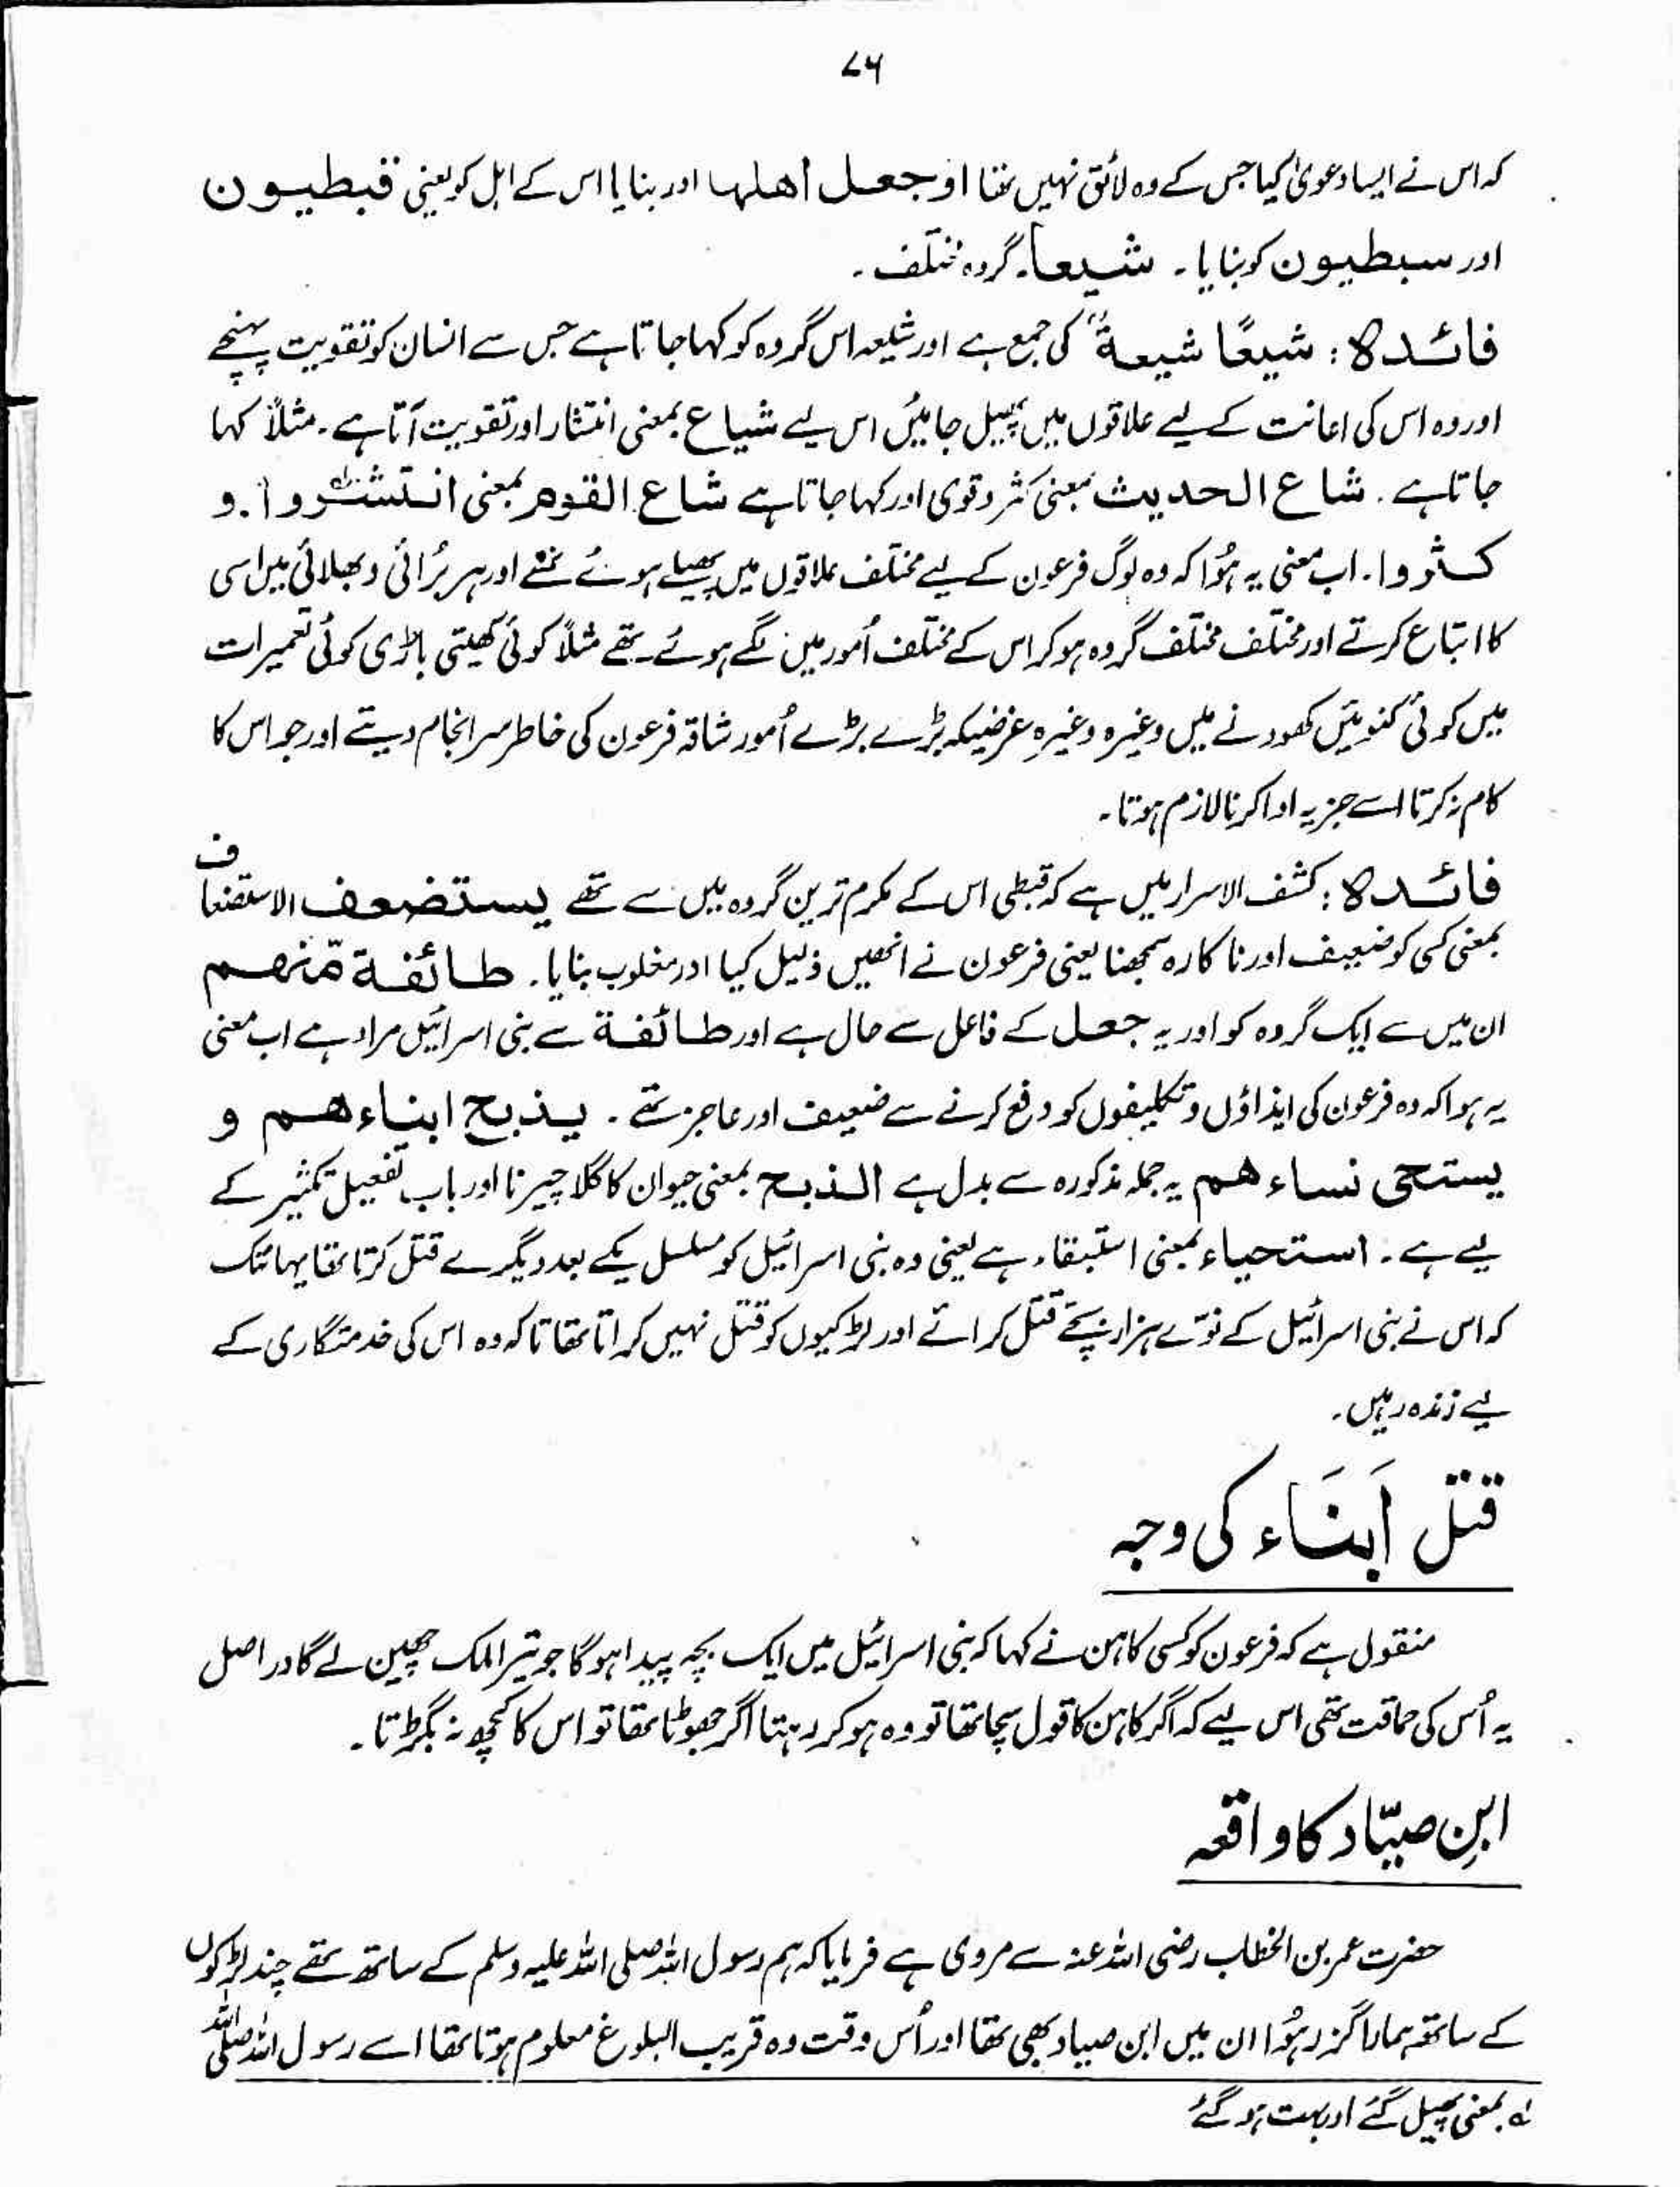 ۷۶
کہ اس نے ایسا دعویٰ کیا جس کے وہ لائق نہیں تھا او جعل اھلھا اور بنایا اس کے اہل کو یعنی قبطیون
اور سبطیون کو بنایا۔ شیعاً۔ گروہ مختلف۔
فائدہ: شیعًا شیعۃٌ کی جمع ہے اور شیعہ اس گروہ کو کہا جاتا ہے جس سے انسان کو تقویت پہنچے
اور وہ اس کی اعانت کے لیے علاقوں میں پھیل جائیں اس لیے شیاع بمعنی انتشار اور تقویت آتا ہے۔ مثلاً کہا
جاتا ہے۔ شاع الحدیث بمعنی کثر وقوی اور کہا جاتا ہے شاع القوم بمعنی انتشروا لہ۔ و
کثروا۔ اب معنی یہ ہُوا کہ وہ لوگ فرعون کے لیے مختلف علاقوں میں پھیلے ہوئے تھے اور ہر بُرائی و بھلائی میں اسی
کا اتباع کرتے اور مختلف مختلف گروہ ہو کر اس کے مختلف اُمور میں لگے ہوئے تھے مثلاً کوئی کھیتی باڑی کوئی تعمیرات
میں کوئی کنوئیں کھودنے میں وغیرہ وغیرہ غرضیکہ بڑے بڑے اُمور شاقہ فرعون کی خاطر سرانجام دیتے اور جو اس کا
کام نہ کرتا اسے جزیہ ادا کرنا لازم ہوتا۔
فائدہ: کشف الاسرار میں ہے کہ قبطی اس کے مکرم ترین گروہ میں سے تھے یستضعف الاستضعاف
بمعنی کسی کو ضعیف اور ناکارہ سمجھنا یعنی فرعون نے انھیں ذلیل کیا اور مغلوب بنایا۔ طائفۃ مّنھم
ان میں سے ایک گروہ کو اور یہ جعل کے فاعل سے حال ہے اور طائفۃ سے بنی اسرائیل مراد ہے اب معنی
یہ ہوا کہ وہ فرعون کی ایذاؤں و تکلیفوں کو دفع کرنے سے ضعیف اور عاجز تھے۔ یذبح ابناءھم و
یستحی نساءھم یہ جملہ مذکورہ سے بدل ہے الذبح بمعنی حیوان کا گلا چیرنا اور باب تفعیل تکثیر کے
لیے ہے۔ استحیاء بمعنی استبقاء ہے یعنی وہ بنی اسرائیل کو مسلسل یکے بعد دیگرے قتل کرتا تھا یہانتک
کہ اس نے بنی اسرائیل کے نوّے ہزار بچّے قتل کرائے اور لڑکیوں کو قتل نہیں کراتا تھا تاکہ وہ اس کی خدمتگاری کے
لیے زندہ رہیں۔
قتل اَبنَاء کی وجہ
منقول ہے کہ فرعون کو کسی کاہن نے کہا کہ بنی اسرائیل میں ایک بچہ پیدا ہو گا جو تیرا ملک چھین لے گا دراصل
یہ اُس کی حماقت تھی اس لیے کہ اگر کاہن کا قول سچا تھا تو وہ ہو کر رہتا اگر جھوٹا تھا تو اس کا کچھ نہ بگڑتا۔
ابنِ صیّاد کا واقعہ
حضرت عمر بن الخطاب رضی اللہ عنہ سے مروی ہے فرمایا کہ ہم رسول اللہ صلی اللہ علیہ وسلم کے ساتھ تھے چند لڑکوں
کے ساتھ ہمارا گزر ہُوا ان میں ابن صیاد بھی تھا اور اُس وقت وہ قریب البلوغ معلوم ہوتا تھا اسے رسول اللہ صلی اللہ
لہ بمعنی پھیل گئے اور بہت ہو گئے